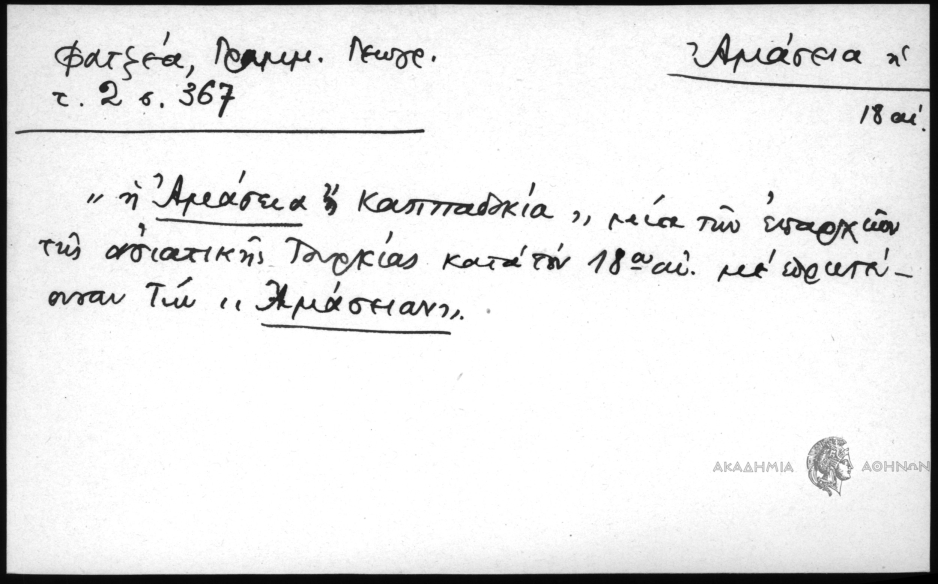 Φατζέα, Γραμμ. Γεωγρ.
τ. 2 σ. 367
Ἀμάσεια ἡ
18 αἰ.
„ ἡ Ἀμάσεια ἢ Καππαδκία „ μία τῶν ἐπαρχιῶν
τῆς ἀσιατικῆς Τουρκίας κατά τόν 18ον αἰ. μέ πρωτεύ-
ουσαν τήν „ Ἀμάσειαν„.
ΑΚΑΔΗΜΙΑ ΑΘΗΝΩΝ